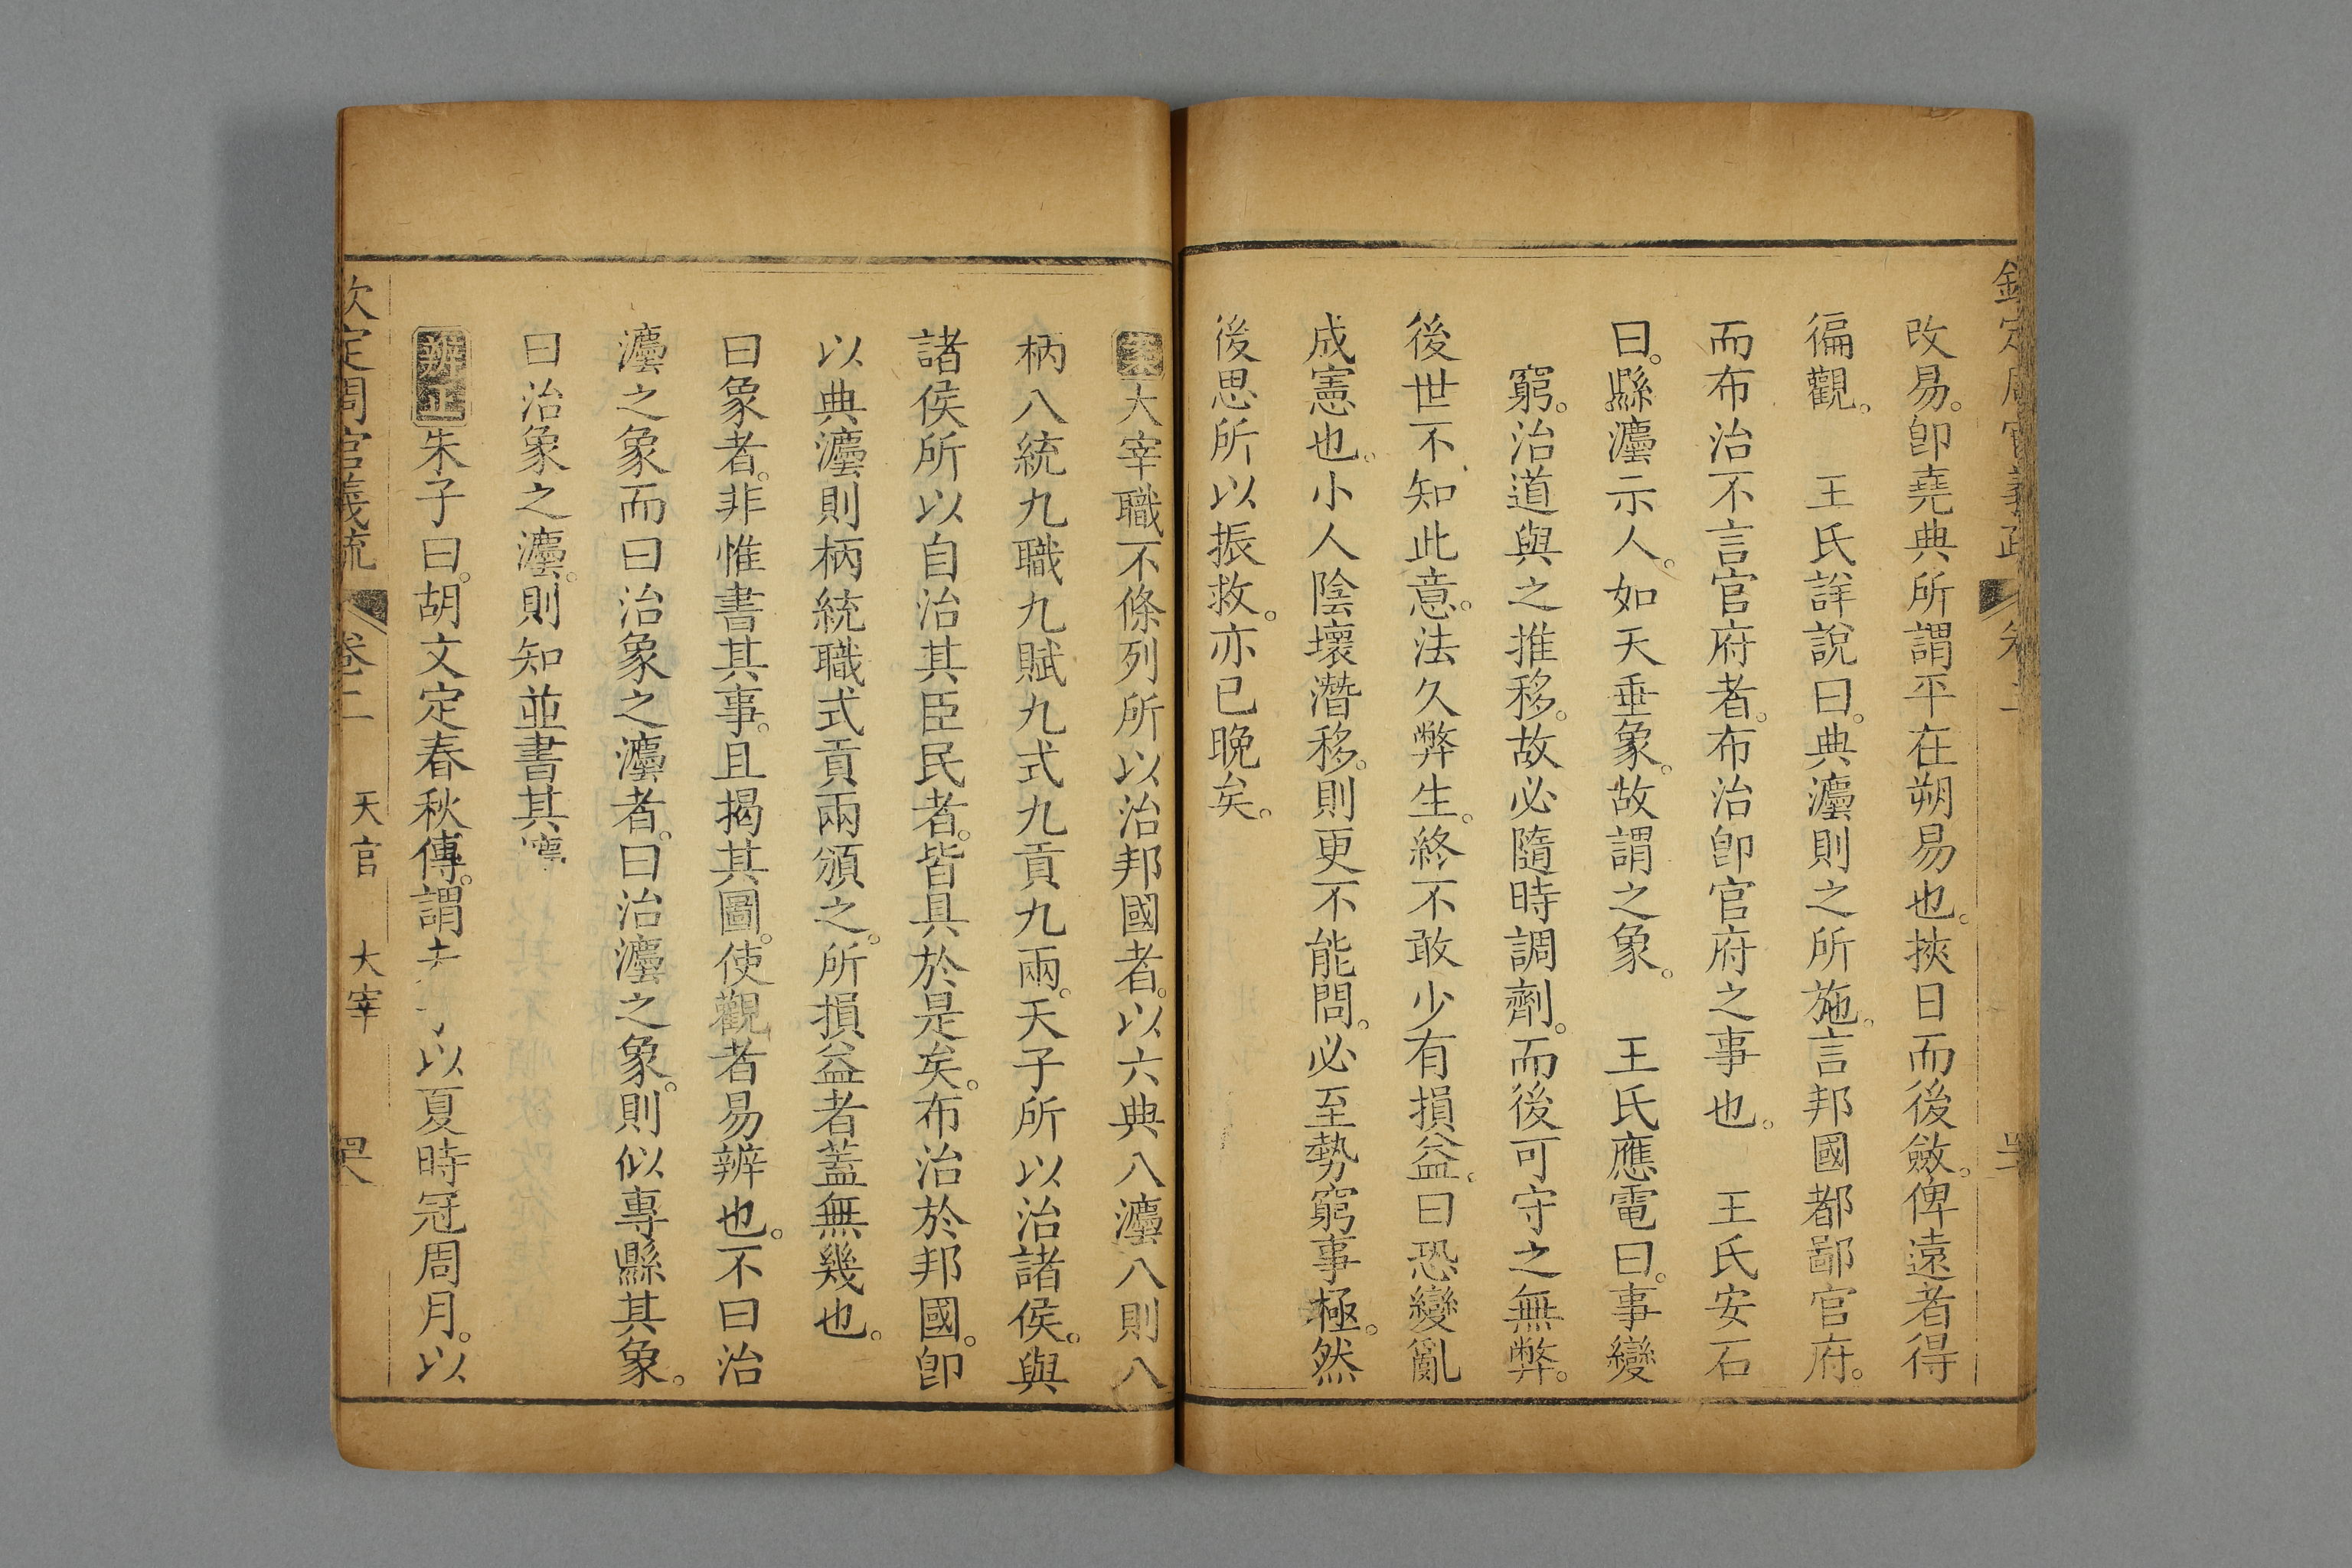 改易。卽堯典所謂平在朔易也。挾日而後斂。俾遠者得
徧觀。　王氏詳說曰。典灋則之所施。言邦國都鄙官府。
而布治不言官府者。布治卽官府之事也。　王氏安石
曰。縣灋示人。如天垂象。故謂之象。　王氏應電曰。事變
窮。治道與之推移。故必隨時調劑。而後可守之無弊。
後世不知此意。法久弊生。終不敢少有損益。曰恐變亂
成憲也。小人陰壞潛移。則更不能問。必至勢窮事極。然
後思所以振救。亦已晚矣。
大宰職不條列所以治邦國者。以六典八灋八則八
柄八統九職九賦九式九貢九兩。天子所以治諸侯。與
諸侯所以自治其臣民者。皆具於是矣。布治於邦國。卽
以典灋則柄統職式貢兩頒之。所損益者蓋無幾也。
曰象者。非惟書其事。且揭其圖。使觀者易辨也。不曰治
灋之象而曰治象之灋者。曰治灋之象。則似專縣其象。
曰治象之灋。則知並書其
辨正朱子曰。胡文定春秋傳。謂以夏時冠周月。以
欽定周官義疏　卷二　天官　大宰